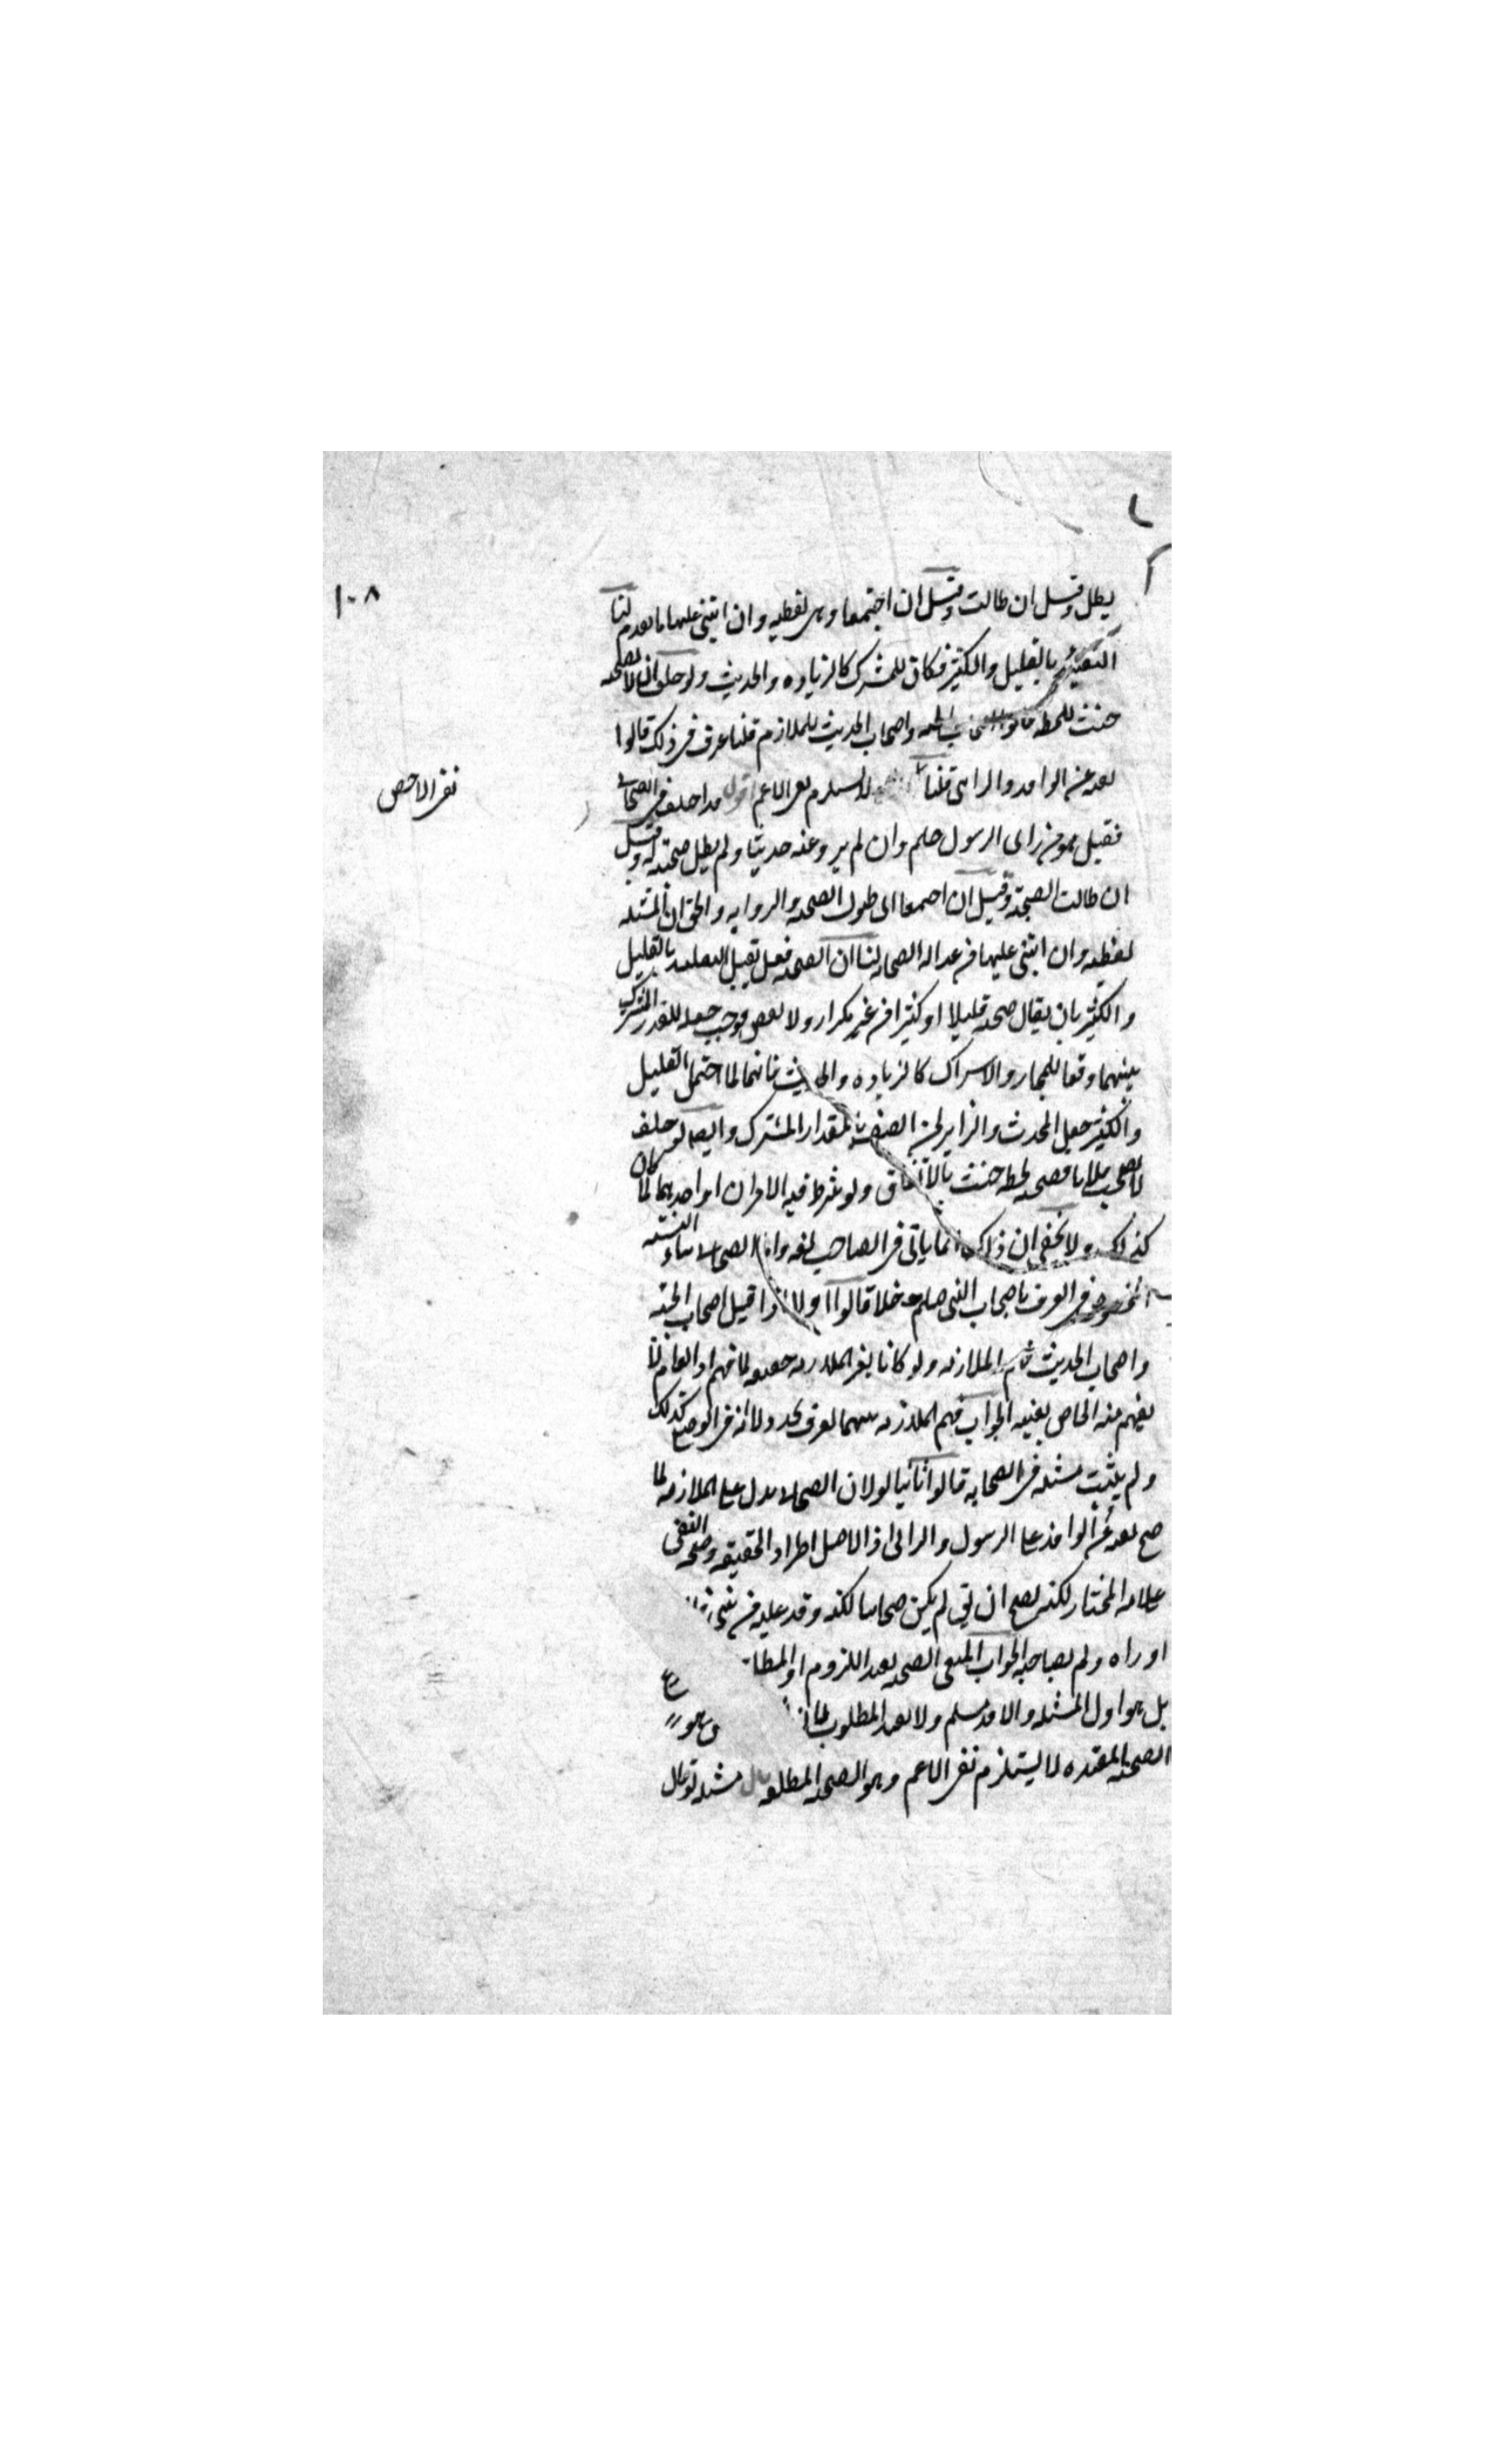 ١٠٨
يطل وقيل ان طالت وقيل ان اجتمعا وهى لفظيه وان ابتنى عليها ما تقدم لنا
بالقليل والكثير فكان للمشترك كالزياده والحديث ولو حلف ان لا يصحبه
حنث بلحظه قالوا الجنه واصحاب الحديث للملازم قلنا عرف فى ذلك قالوا
يصح نفيه عن الوافد والرائى قلنا لا يستلزم نفى الاعم اقول قد اختلف فى الصحابى
نفى الاخص
فقيل هو من راى الرسول صلعم وان لم يرو عنه حديثا ولم يطل صحبته له وقيل
ان طالت الصحبة وقيل ان اجتمعا اى طول الصحبه والروايه والحق ان المسئله
لفظيه وان ابتنى عليها فى عدالة الصحابه لنا ان الصحبه فعل تقبل التقليد بالقليل
والكثير بان يقال صحبه قليلا او كثيرا من غير تكرار ولا نقض فوجب جعله للقدر المشترك
بينهما دفعا للمجاز والاشتراك كالزياده والحديث فانهما لما احتمل القليل
والكثير جعل المحدث والزاير لمن اتصف بالمقدار المشترك وايضا لو حلف
لا يصحب فلانا فصحبه لحظه حنث بالاتفاق ولو شرط فيه الامران او احدهما لما كان
كذلك ولا يخفى ان ذلك انما ياتى فى الصاحب لغه واما الصحابى بياء النسبة
المخصوص فى العرف باصحاب النبى صلعم فلا قالوا اولا اذا قيل اصحاب الجنه
واصحاب الحديث فهم الملازمه ولو كانا بغير الملازمه حقيقه لما فهم اذ العام لا
يفهم منه الخاص بعينه الجواب فهم الملازمه فيهما لعرف تجدد ولا انه فى الوضع كذلك
ولم يثبت مثله فى الصحابه قالوا ثانيا لو لا ان الصحابى يدل على الملازمه لما
صح نفيه عن الوافد على الرسول والرائى اذ الاصل اطراد الحقيقه وصحه النفى
علامه المختار لكنه يصح ان يق لم يكن صحابيا لكنه وفد عليه من
او راه ولم يصاحبه الجواب المنفى الصحبه بقيد اللزوم او المطلق
بل هو اول المسئله والا فمسلم ولا يفيد المطلوب لما
الصحبه المقيده لا يستلزم نفى الاعم وهو الصحبه المطلقه قال مسئله لو قال